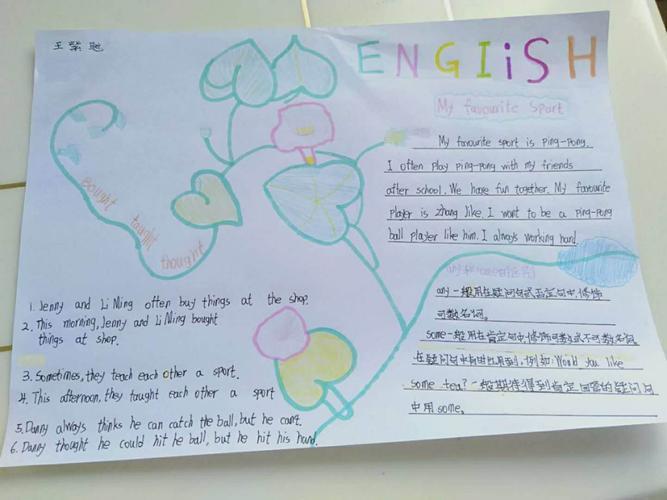 王紫
ENGIiSH
My favourite Sport
My favourite sport is Ping-Pong.
I often play ping-pong with my friends
after school. We have fun together. My favourite
player is zhang like. I want to be a ping-pong
ball player like him. I always working hard.
bought taught thought
any一般用在疑问句或否定句中,修饰
可数名词。
some一般用在肯定句中修饰可数或不可数名词。
在疑问句中有时也用到,例如:Would you like
some tea?一般期待得到肯定回答的疑问句
中用some。
1. Jenny and Li Ming often buy things at the shop.
2. This morning, Jenny and Li Ming bought
things at shop.
3. Sometimes, they teach each other a sport.
4. This afternoon, they taught each other a sport
5. Danny always thinks he can catch the ball, but he can't.
6. Danny thought he could hit he ball, but he hit his hand.